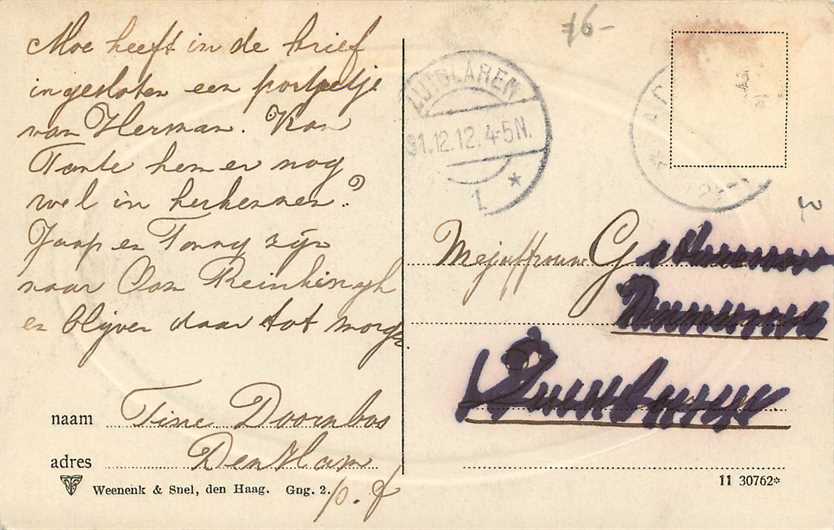 Moe heeft in de brief
ingesloten een portretje
van Herman. Kan
Tante hem er nog
wel in herkennen?
Jaap en Tonny zijn
naar Oom Reinkingh
en blijven daar tot morgen
naam Tine Doornbos
adres Den Ham
p. f.
Weenenk & Snel, den Haag. Gng. 2.
16-
ZUIDLAREN
31.12.12. 4-5N.
1 *
Mejuffrouw G
11 30762*